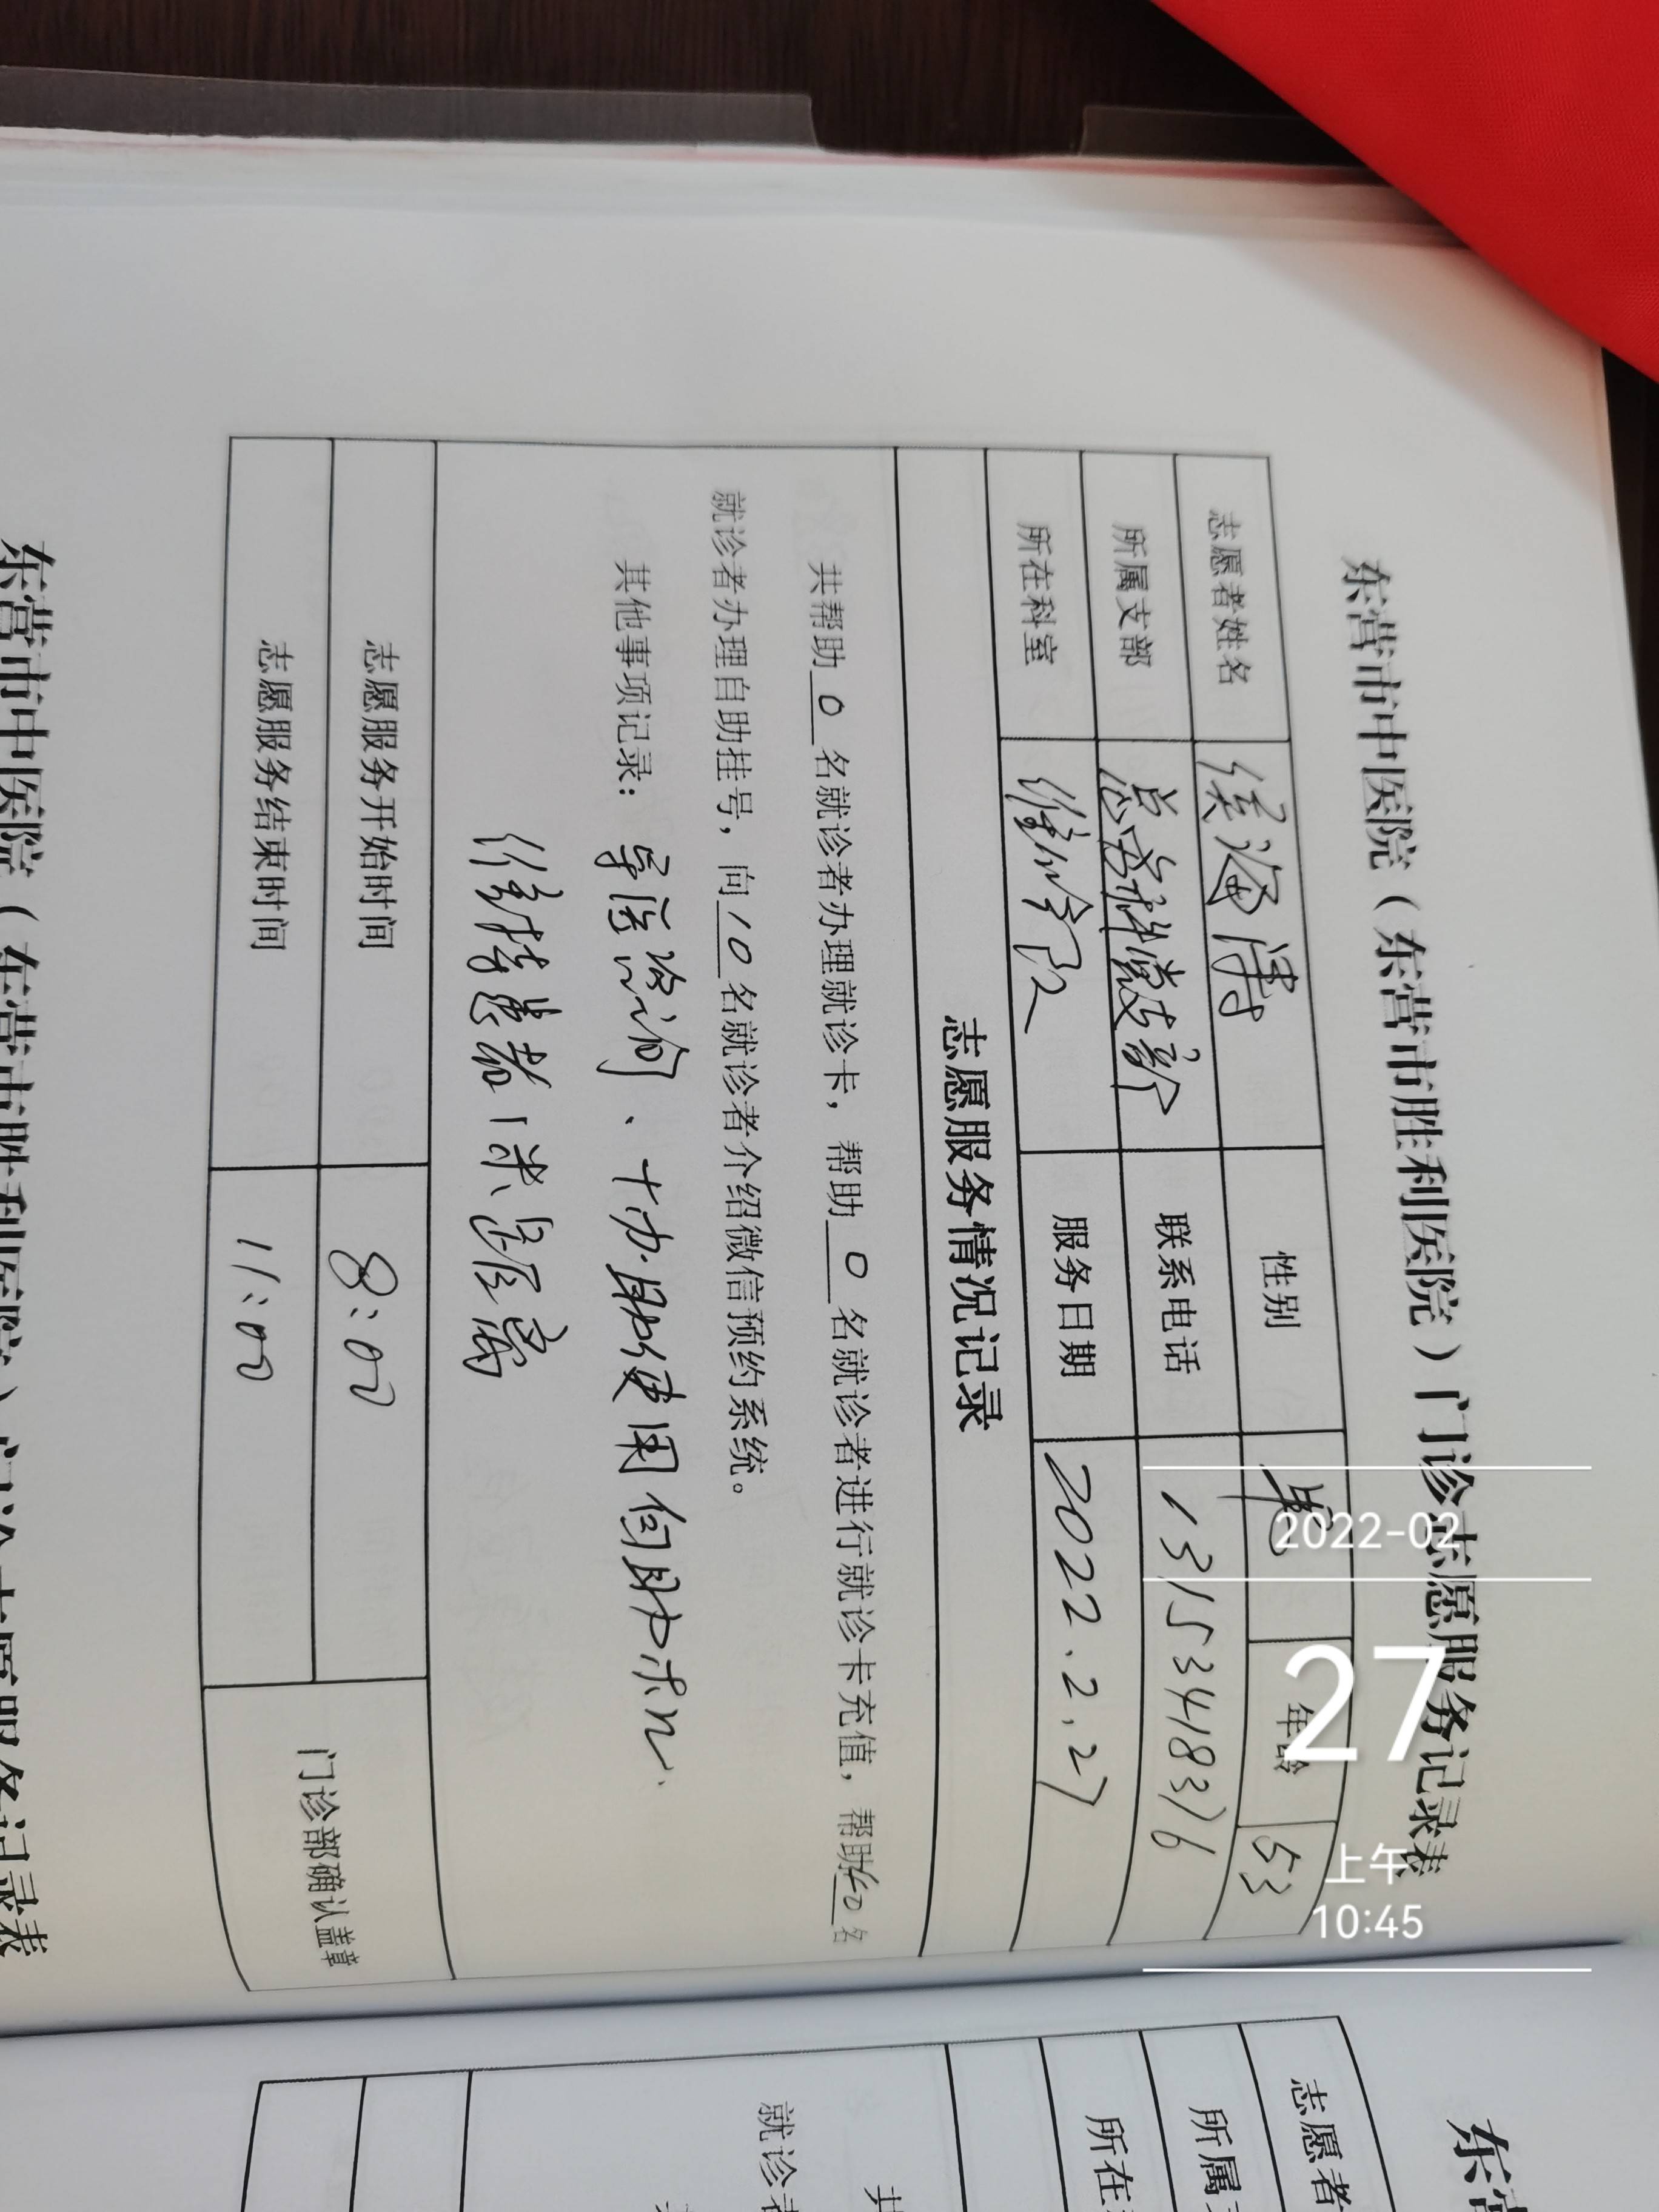 东营市中医院（东营市胜利医院）门诊志愿服务记录表
志愿者姓名 侯海涛 性别 男 年龄 53
所属支部 联系电话 13153418376
所在科室 服务日期 2022.2.27
志愿服务情况记录
共帮助 0 名就诊者办理就诊卡，帮助 0 名就诊者进行就诊卡充值，帮助 40 名
就诊者办理自助挂号，向 10 名就诊者介绍微信预约系统。
其他事项记录：导医咨询、协助使用自助机、
维持患者1米距离
志愿服务开始时间 8:00 门诊部确认盖章
志愿服务结束时间 11:00
2022-02
27
上午
10:45
东营市中医院（东营市胜利医院）门诊志愿服务记录表
东营
志愿者
所属
所在
共
就诊者